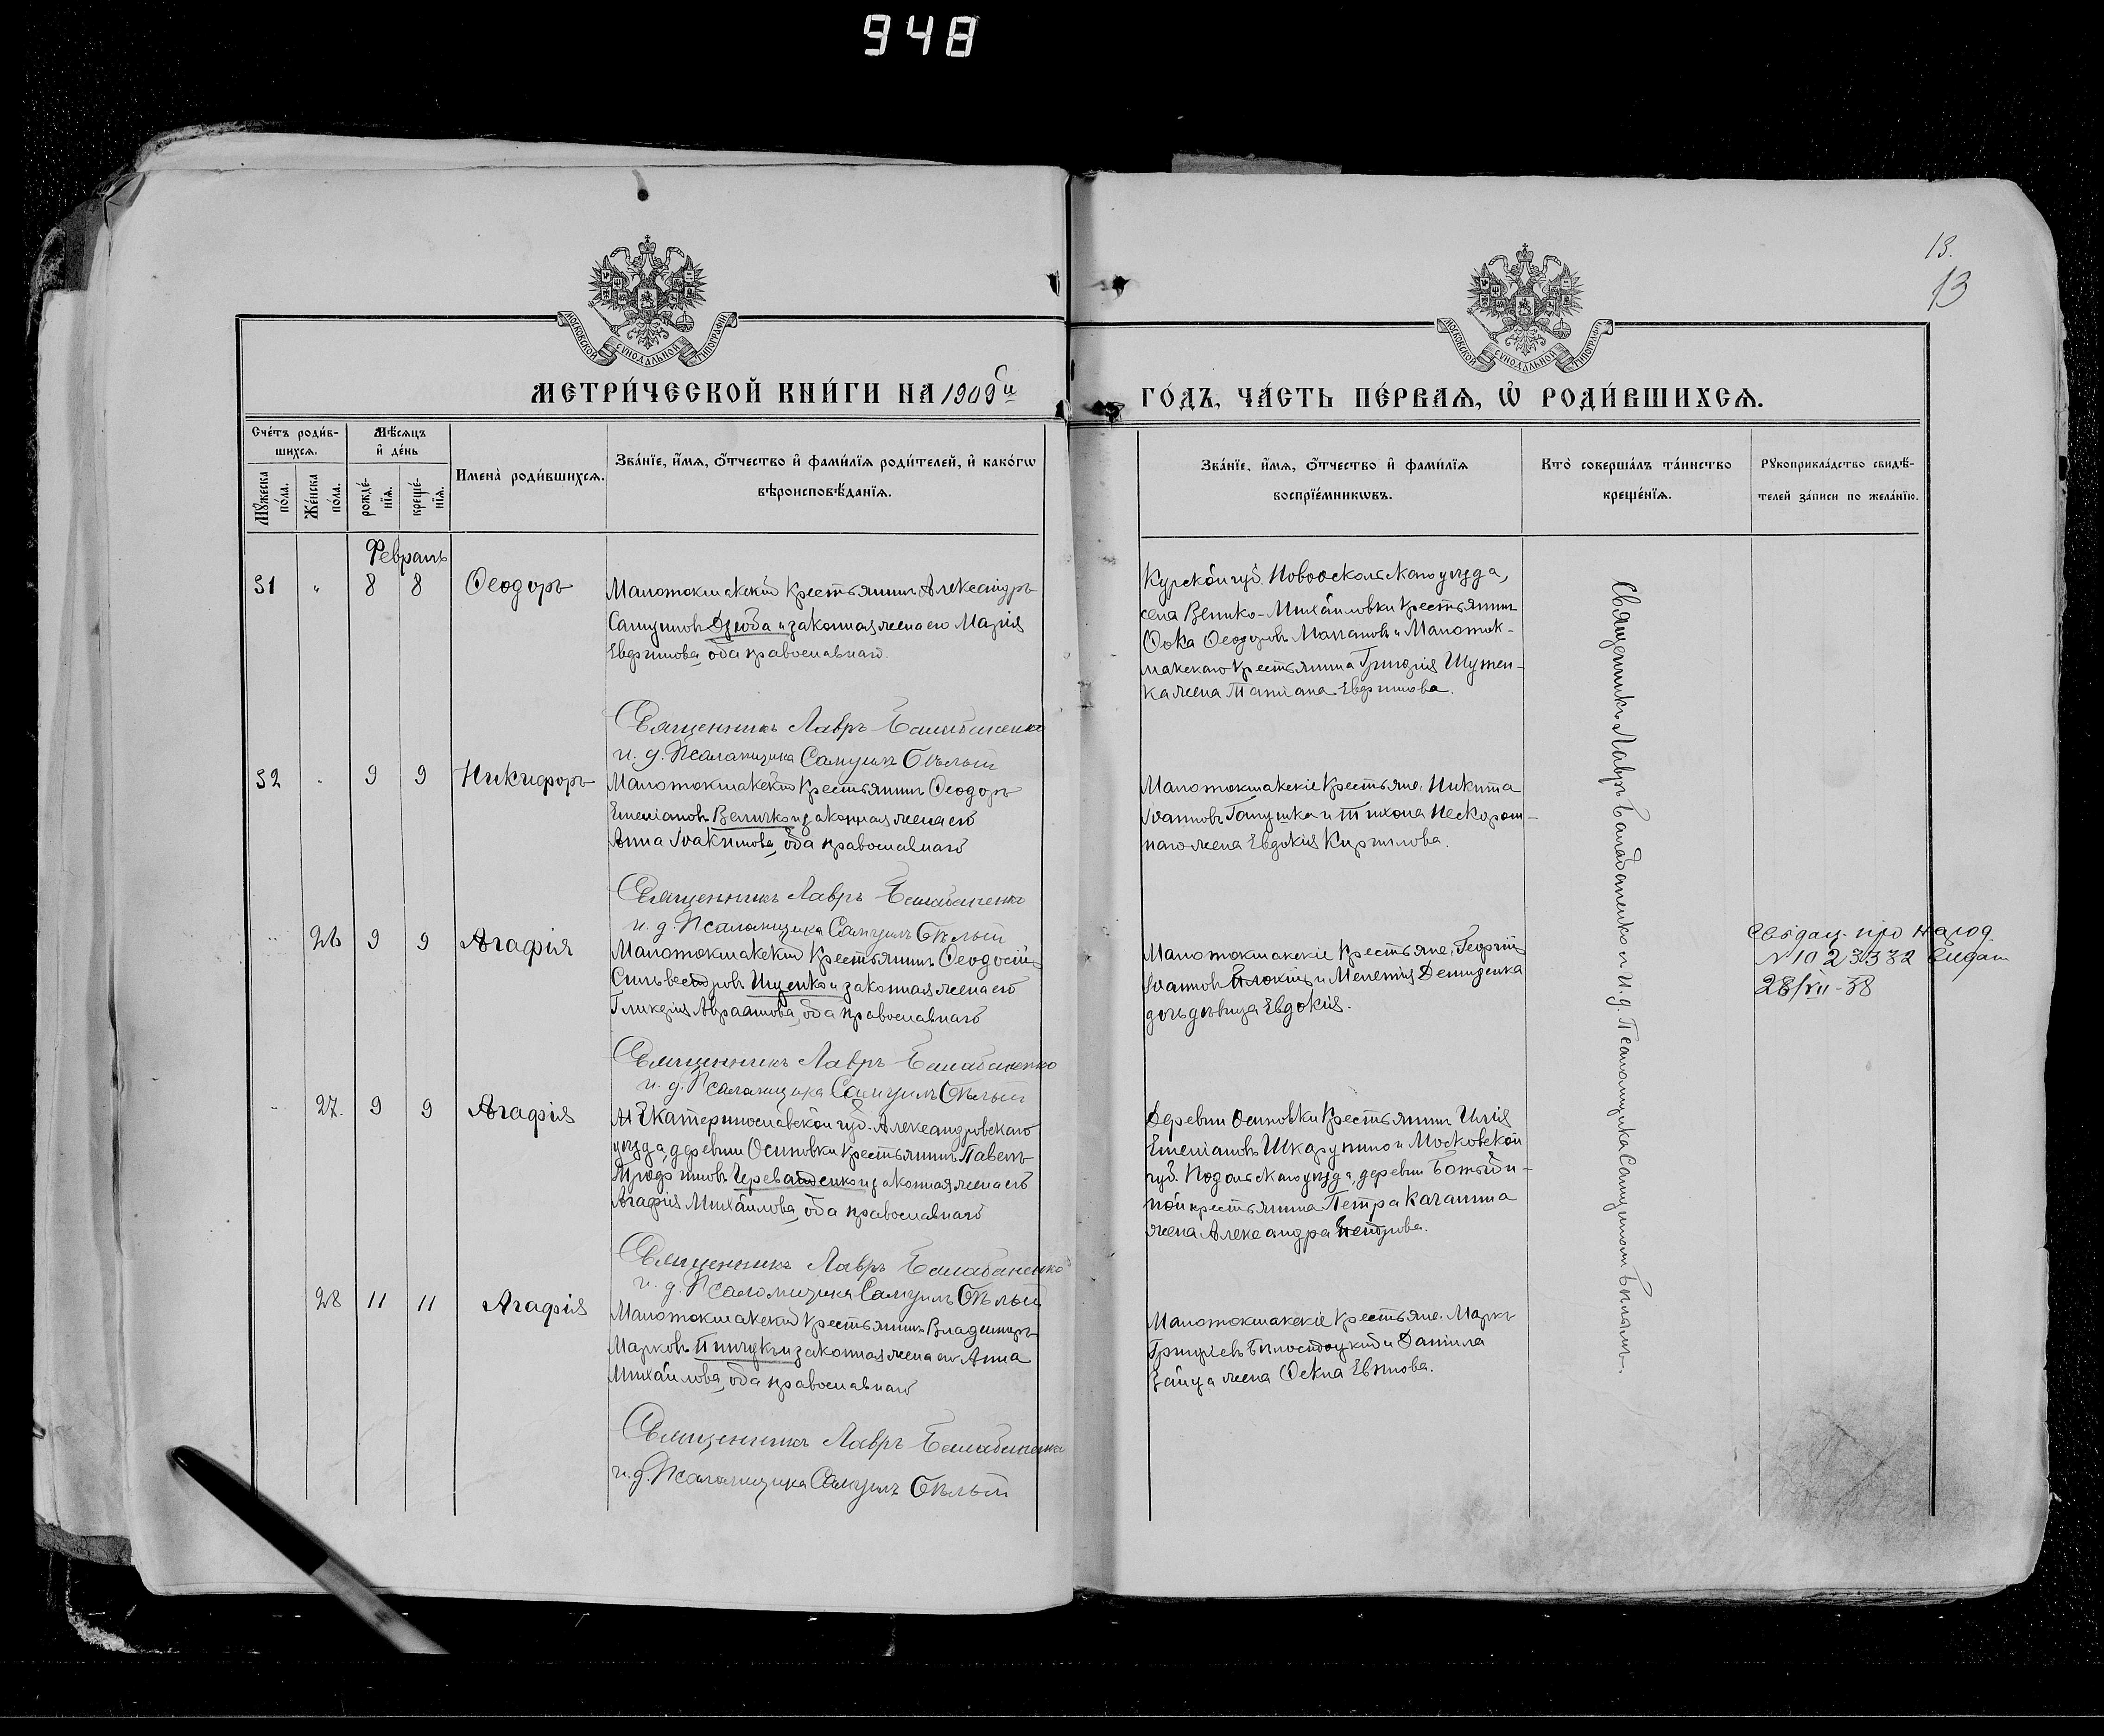 948
13.
13
МОСКОВСКОЙ СѴНОДАЛЬНОЙ ТИПОГРАФІИ
МОСКОВСКОЙ СѴНОДАЛЬНОЙ ТИПОГРАФІИ
МЕТРИ́ЧЕСКОЙ КНИ́ГИ НА 1909й
ГО́ДЪ, ЧА́СТЬ ПЕ́РВАѦ, Ѡ҆ РОДИ́ВШИХСѦ.
Сче́тъ роди́в-
шихсѧ.
Мꙋ́жеска по́ла.
Же́нска по́ла.
Мѣ́сѧцъ
и҆ де́нь
рожде́-
нїѧ.
креще́-
нїѧ.
Имена̀ роди́вшихсѧ.
Зва́нїе, и҆́мѧ, ѻ҆́тчество и҆ фами́лїѧ роди́телей, и҆ како́гѡ
вѣроисповѣ́данїѧ.
Зва́нїе, и҆́мѧ, ѻ҆́тчество и҆ фами́лїѧ
воспрїе́мникѡвъ.
Кто̀ соверша́лъ та́инство
креще́нїѧ.
Рꙋкоприкла́дство свидѣ́-
телей за́писи по жела́нїю.
Февраль
31 " 8 8 Ѳеодоръ
Малотокмакскій крестьянинъ Александръ
Самуиловъ Дзюба и законная жена его Марія
Евфимова, оба православнаго.
Священникъ Лавръ Балабаненко
и. д. Псаломщика Самуилъ Бѣлый
Курской губ. Новооскольскаго уѣзда,
села Велико-Михайловки крестьянинъ
Ѳока Ѳеодоровъ Маслановъ и Малоток-
макскаго крестьянина Григорія Шумей-
ка жена Татіана Евфимова.
32 " 9 9 Никифоръ
Малотокмакскій крестьянинъ Ѳеодоръ
Емеліановъ Величко и законная жена его
Анна Іоакимова, оба православнаго
Священникъ Лавръ Балабаненко
и. д. Псаломщика Самуилъ Бѣлый
Малотокмакскіе крестьяне: Никита
Іоанновъ Галушка и Тихона Нескором-
наго жена Евдокія Кириллова.
" 26 9 9 Агафія
Малотокмакскій крестьянинъ Ѳеодосій
Сильвестровъ Ищенко и законная жена его
Гликерія Авраамова, оба православнаго
Священникъ Лавръ Балабаненко
и. д. Псаломщика Самуилъ Бѣлый
Малотокмакскіе крестьяне: Георгій
Іоанновъ и Мелетія Демиденка
дочь дѣвица Евдокія.
Свідоц. про народ.
N 10 23332 видан
28/VII-38
" 27. 9 9 Агафія
Екатеринославской губ. Александровскаго
уѣзда, деревни Осиповки крестьянинъ Павелъ
Трофимовъ Череватенко и законная жена его
Агафія Михайлова, оба православнаго
Священникъ Лавръ Балабаненко
и. д. Псаломщика Самуилъ Бѣлый
Деревни Осиповки крестьянинъ Илія
Емеліановъ Шкарупило и Московской
губ. Подольскаго уѣзда, деревни
крестьянина Петра Качанина
жена Александра Петрова.
28 11 11 Агафія
Малотокмакскій крестьянинъ Владиміръ
Марковъ Пинчукъ и законная жена его Анна
Михайлова, оба православнаго
Священникъ Лавръ Балабаненко
и. д. Псаломщика Самуилъ Бѣлый
Малотокмакскіе крестьяне: Маркъ
Григоріевъ Бѣлостоцкій и Даніила
Зайца жена Ѳекла Евѳимова.
Священникъ Лавръ Балабаненко и И. д. Псаломщика Самуиломъ Бѣлымъ.